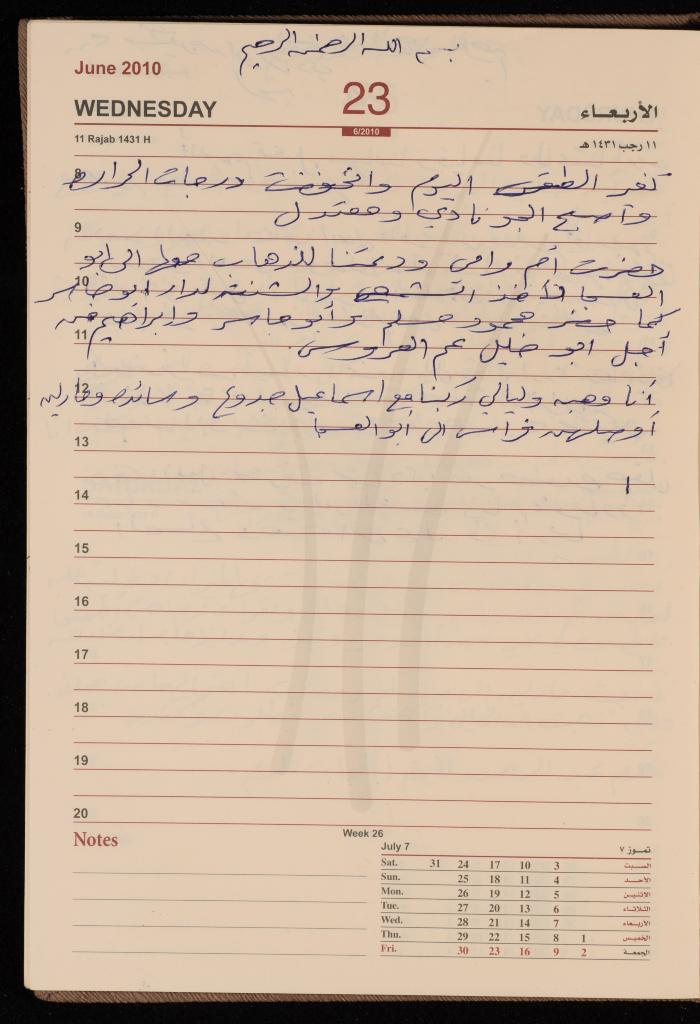 بسم الله الرحمن الرحيم
June 2010
WEDNESDAY
23
الأربعاء
11 Rajab 1431 H
6/2010
١١ رجب ١٤٣١ هـ
8
الطقس اليوم وانخفضت درجات الحرارة
وأصبح الجو نادي ومعتدل
9
حضرت أم رامي ودعتنا للذهاب معها الى ابو
10
والشنته لدار ابو
كما حضر محمود مسلم وابراهيم من
11
أجل ابو خليل عم العروس.
12
أنا وهبه وليالي ركبنا مع اسماعيل
13
أوصلهن فراس الى ابو
14
15
16
17
18
19
20
Notes
Week 26
July 7
تمــوز ٧
Sat. 31 24 17 10 3 السبت
Sun. 25 18 11 4 الأحــد
Mon. 26 19 12 5 الاثنين
Tue. 27 20 13 6 الثلاثاء
Wed. 28 21 14 7 الأربعاء
Thu. 29 22 15 8 1 الخميس
Fri. 30 23 16 9 2 الجمعة